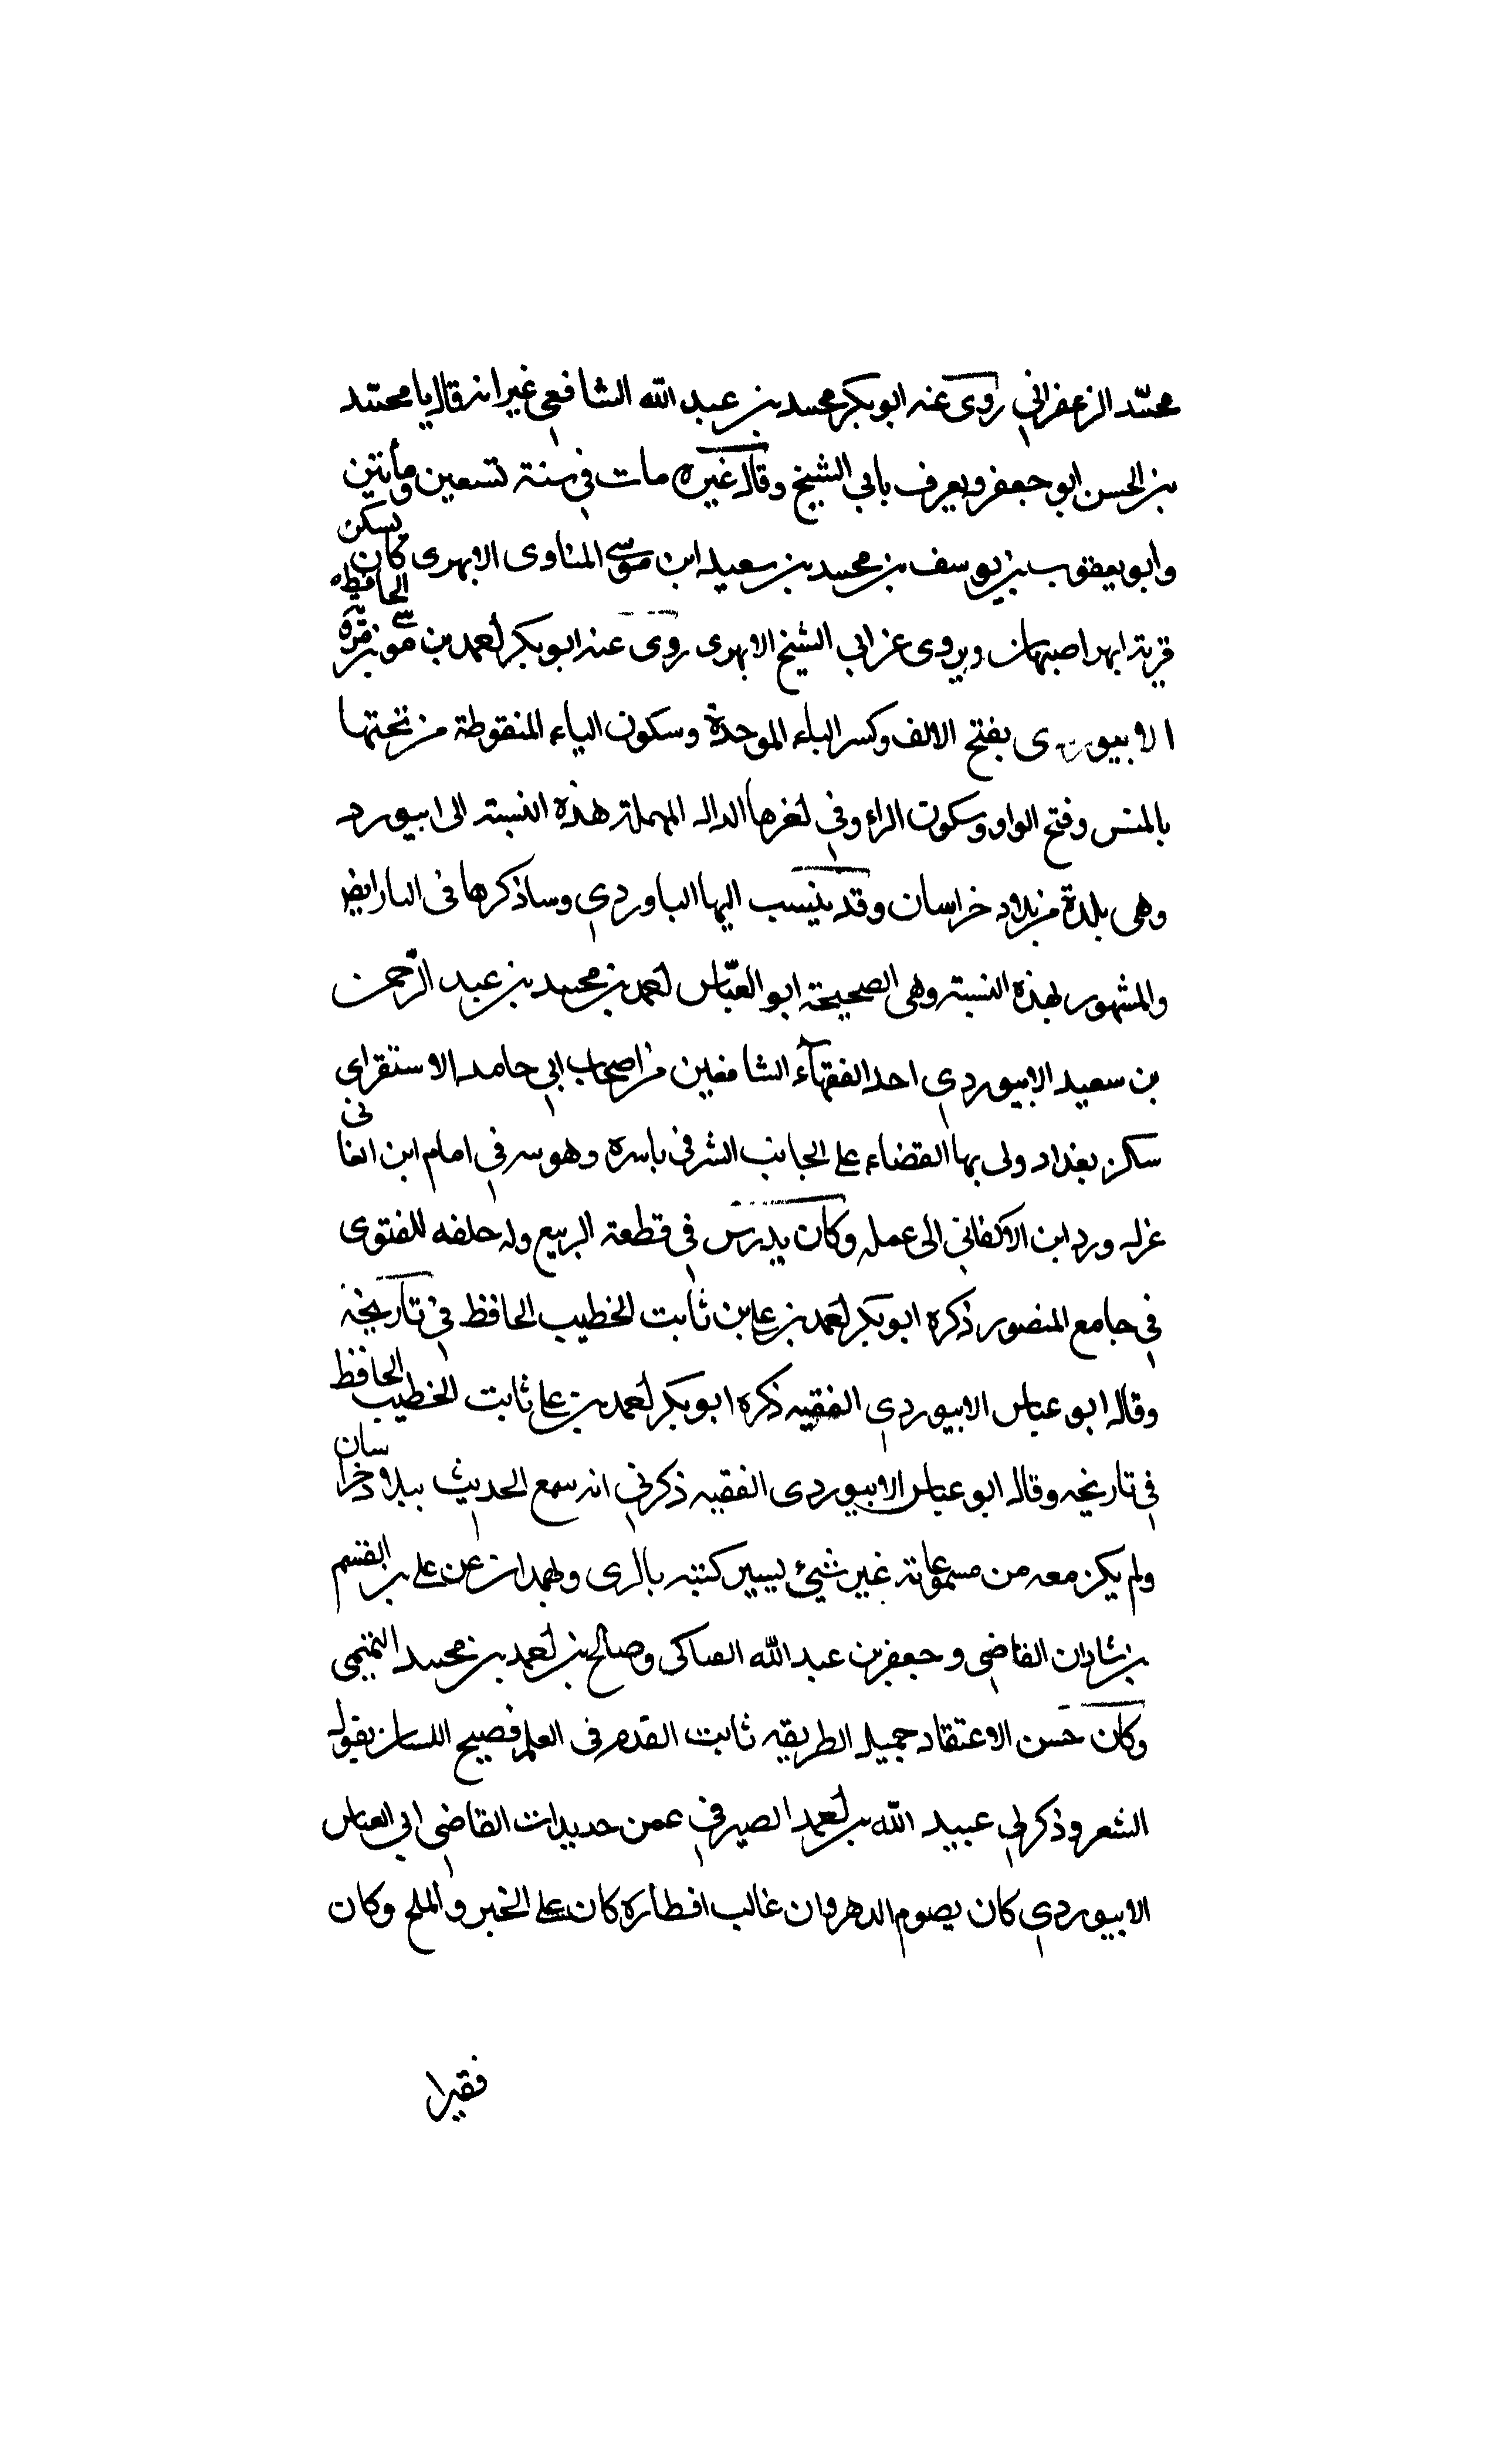 محمّد الزعفراني روى عنه ابو بكر محمد بن عبد الله الشافعي غير انه قال يا محمّد
بن الحسن ابو جعفر ويعرف بابي الشيخ وقال غيره مات في سنة تسعين ومأتين
وابو يعقوب بن يوسف بن محمد بن سعيد ابن موسى المناوى الابهرى كان يسكن
قرية ابهر اصبهان ويروى عن ابي الشيخ الابهرى روى عنه ابو بكر احمد بن موسى بن مرة الحافظ
الابيوردى بفتح الالف وكسر الباء الموحدة وسكون الياء المنقوطة من تحتها
بالمنس وفتح الواو وسكون الراء وفي اخرها الدال المهملة هذه النسبة الى ابيورد
وهى بلدة من بلاد خراسان وقد ينسب اليها الباوردي وساذكرها في البا ايض
والمشهور بهذه النسبة وهى الصحيحة ابو العبّاس احمد بن محمد بن عبد الرّحمن
بن سعيد الابيوردي احد الفقهآء الشافعين من اصحاب ابي حامد الاستقراى
سكن بغداد ولى بها القضاء على الجانب الشرقي باسره وهو سرقي امام ابن الفانى
عزله ورد ابن الاكفاني الى عمله وكان يدرس في قطعة الربيع وله حلفه للفتوى
في جامع المنصور ذكره ابو بكر احمد بن على بن ثابت الخطيب الحافظ في تاريخه
وقال ابو عباس الابيوردي الفقيه ذكره ابو بكر احمد بن على ثابت الخطيب الحافظ
في تاريخه وقال ابو عباس الابيوردى الفقيه ذكرني انه سمع الحديث ببلاد خراسان
ولم يكن معه من مسموعاته غير شيئ يسير كتبه بالرى وبهمدان عن على بن القسم
بن شاذان القاضي وجعفر بن عبد الله الصاكى وصالح بن احمد بن محمد التميمى
وكان حسن الاعتقاد جميل الطريقه ثابت القدم في العلم فصيح اللسان يقول
الشعر وذكر لي عبيد الله بن احمد الصيرفي عمن حديدات القاضي ابي العباس
الابيوردي كان يصوم الدهر وان غالب افطاره كان على الخبر والملح وكان
فقيرا